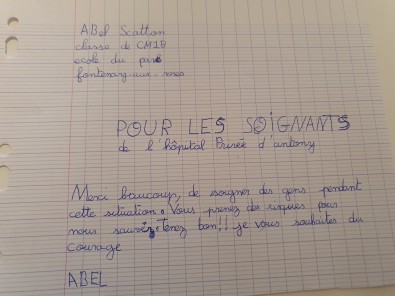 ABel Scatton
classe de CM1B
ecole du parc
fontenay-aux-roses
POUR LES SOIGNANTS
de l'hôpital Privée d'antony
Merci baucoup, de soigner des gens pendant
cette situation. Vous prenez des risques pour
nous sauvéz. Tenez bon!! je vous souhaites du
courage
ABEL